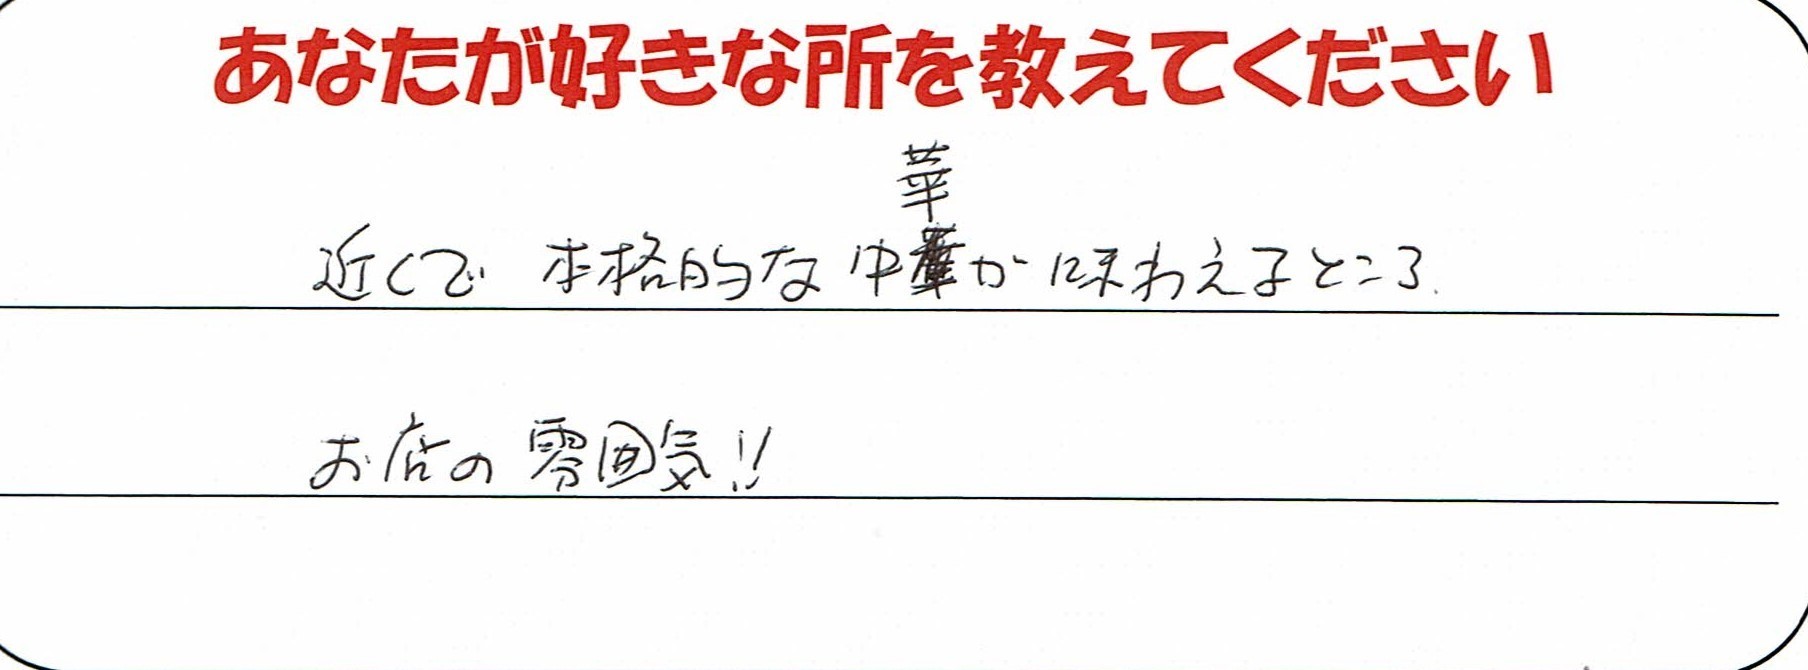 あなたが好きな所を教えてください
華
近くで 本格的な中華が味わえるところ.
お店の雰囲気!!